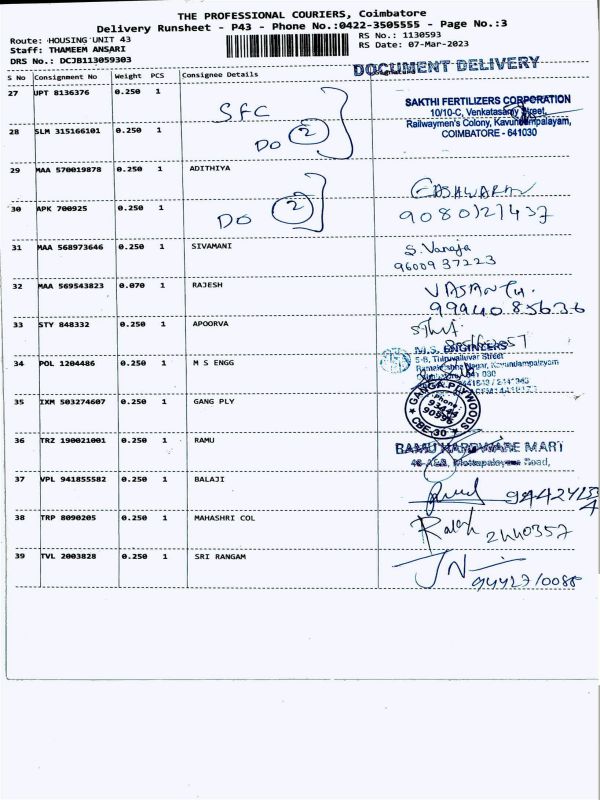 THE PROFESSIONAL COURIERS, Coimbatore
Delivery Runsheet - P43 - Phone No.:0422-3505555 - Page No.:3
Route: HOUSING UNIT 43
RS No.: 1130593
Staff: THAMEEM ANSARI
RS Date: 07-Mar-2023
DRS No.: DCJB113059303
DOCUMENT DELIVERY
S No Consignment No Weight PCS Consignee Details
27 UPT 8136376 0.250 1 SFC
28 SLM 315166101 0.250 1 DO 2
SAKTHI FERTILIZERS CORPORATION
10/10-C, Venkatasamy Street,
Railwaymen's Colony, Kavundampalayam,
COIMBATORE - 641030
29 MAA 570019878 0.250 1 ADITHIYA
30 APK 700925 0.250 1 DO 2
31 MAA 568973646 0.250 1 SIVAMANI S. Vanaja
9600937223
32 MAA 569543823 0.070 1 RAJESH
9994085636
33 STY 848332 0.250 1 APOORVA
34 POL 1204486 0.250 1 M S ENGG
M.S. ENGINEERS
5-B, Thiruvalluvar Street
Nagar, Kavundampalayam
35 IXM 503274607 0.250 1 GANG PLY
GANGA PLYWOODS
Phone
93444
90996
CBE-30
36 TRZ 190021001 0.250 1 RAMU
RAMU HARDWARE MART
Road,
37 VPL 941855582 0.250 1 BALAJI
38 TRP 8090205 0.250 1 MAHASHRI COL
2440357
39 TVL 2003828 0.250 1 SRI RANGAM